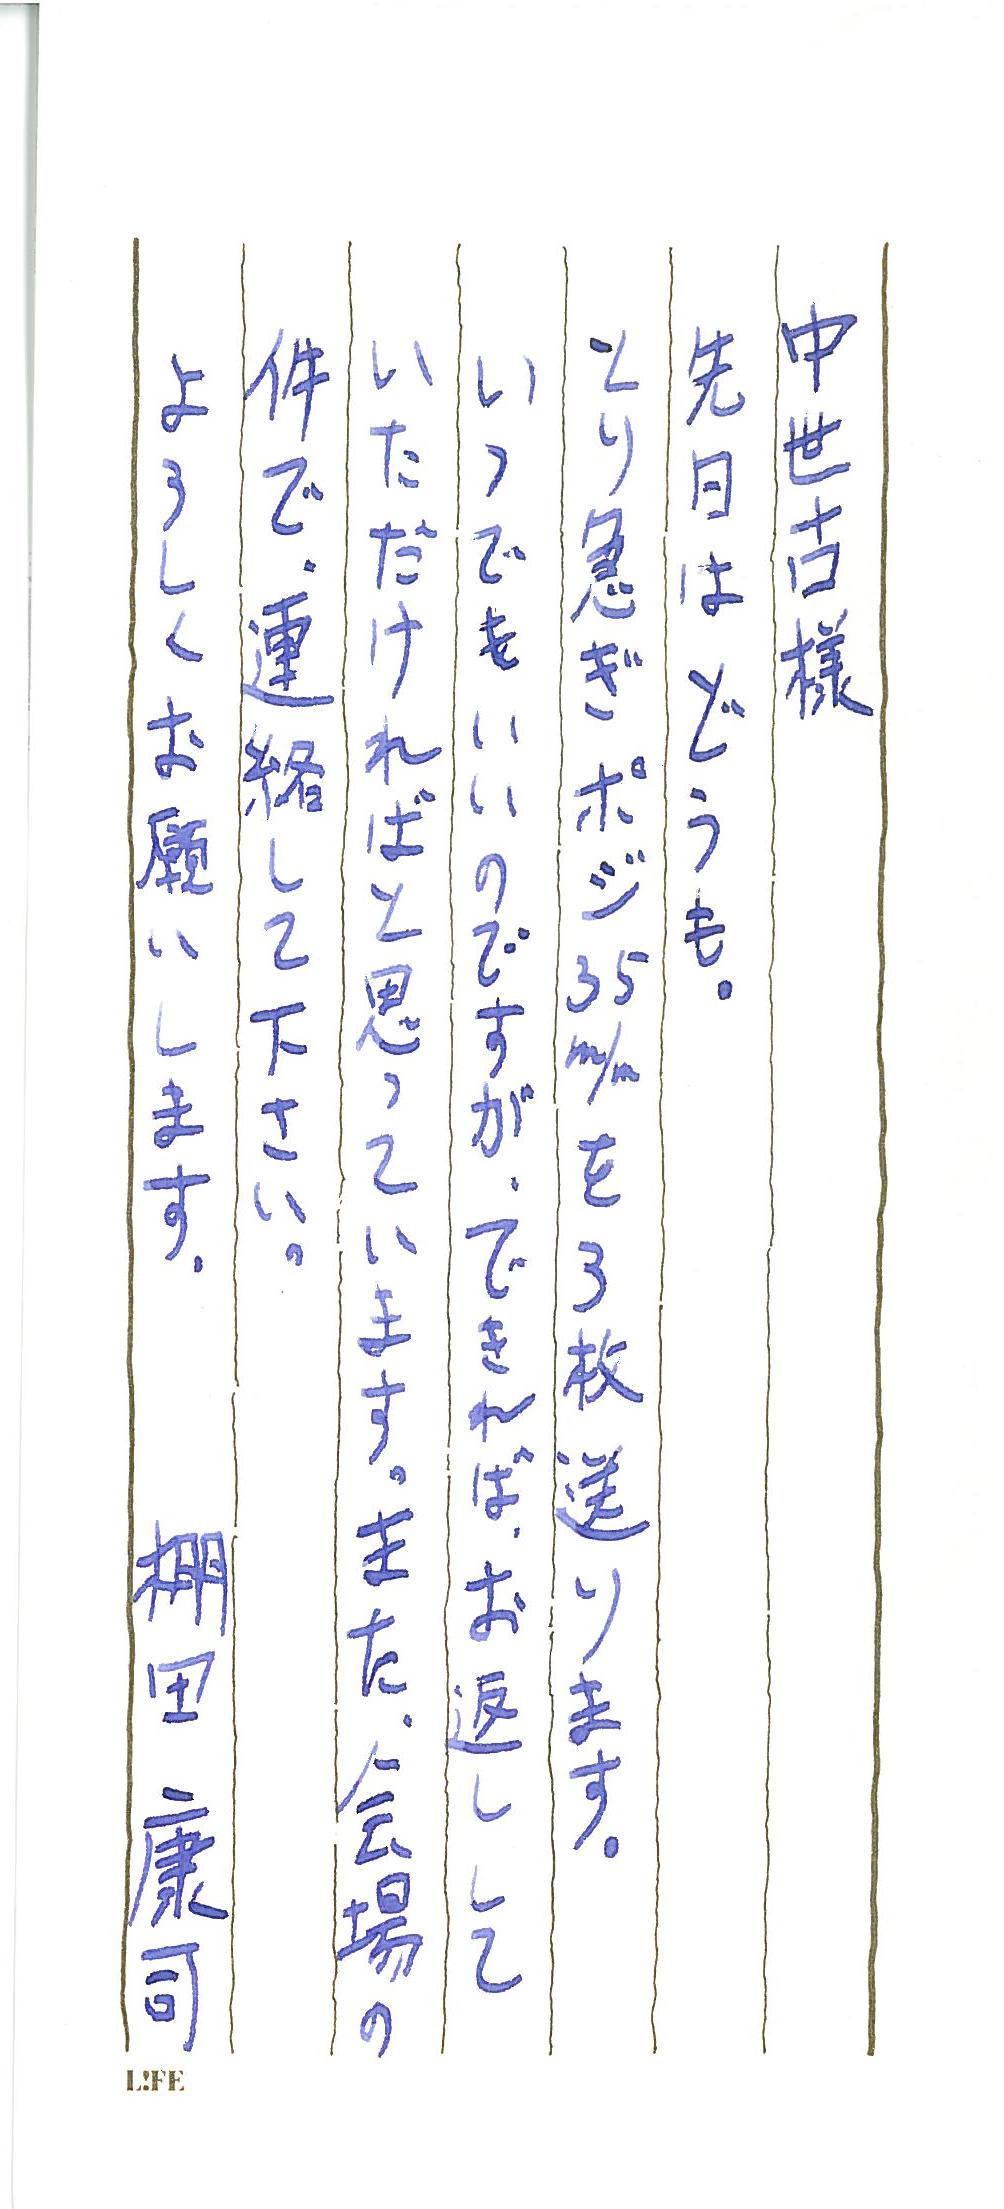 中世古様
先日はどうも。
とり急ぎポジ35m/mを3枚送ります。
いつでもいいのですが、できれば、お返しして
いただければと思っています。また、会場の
件で、連絡して下さい。
よろしくお願いします。 棚田康司
L!FE